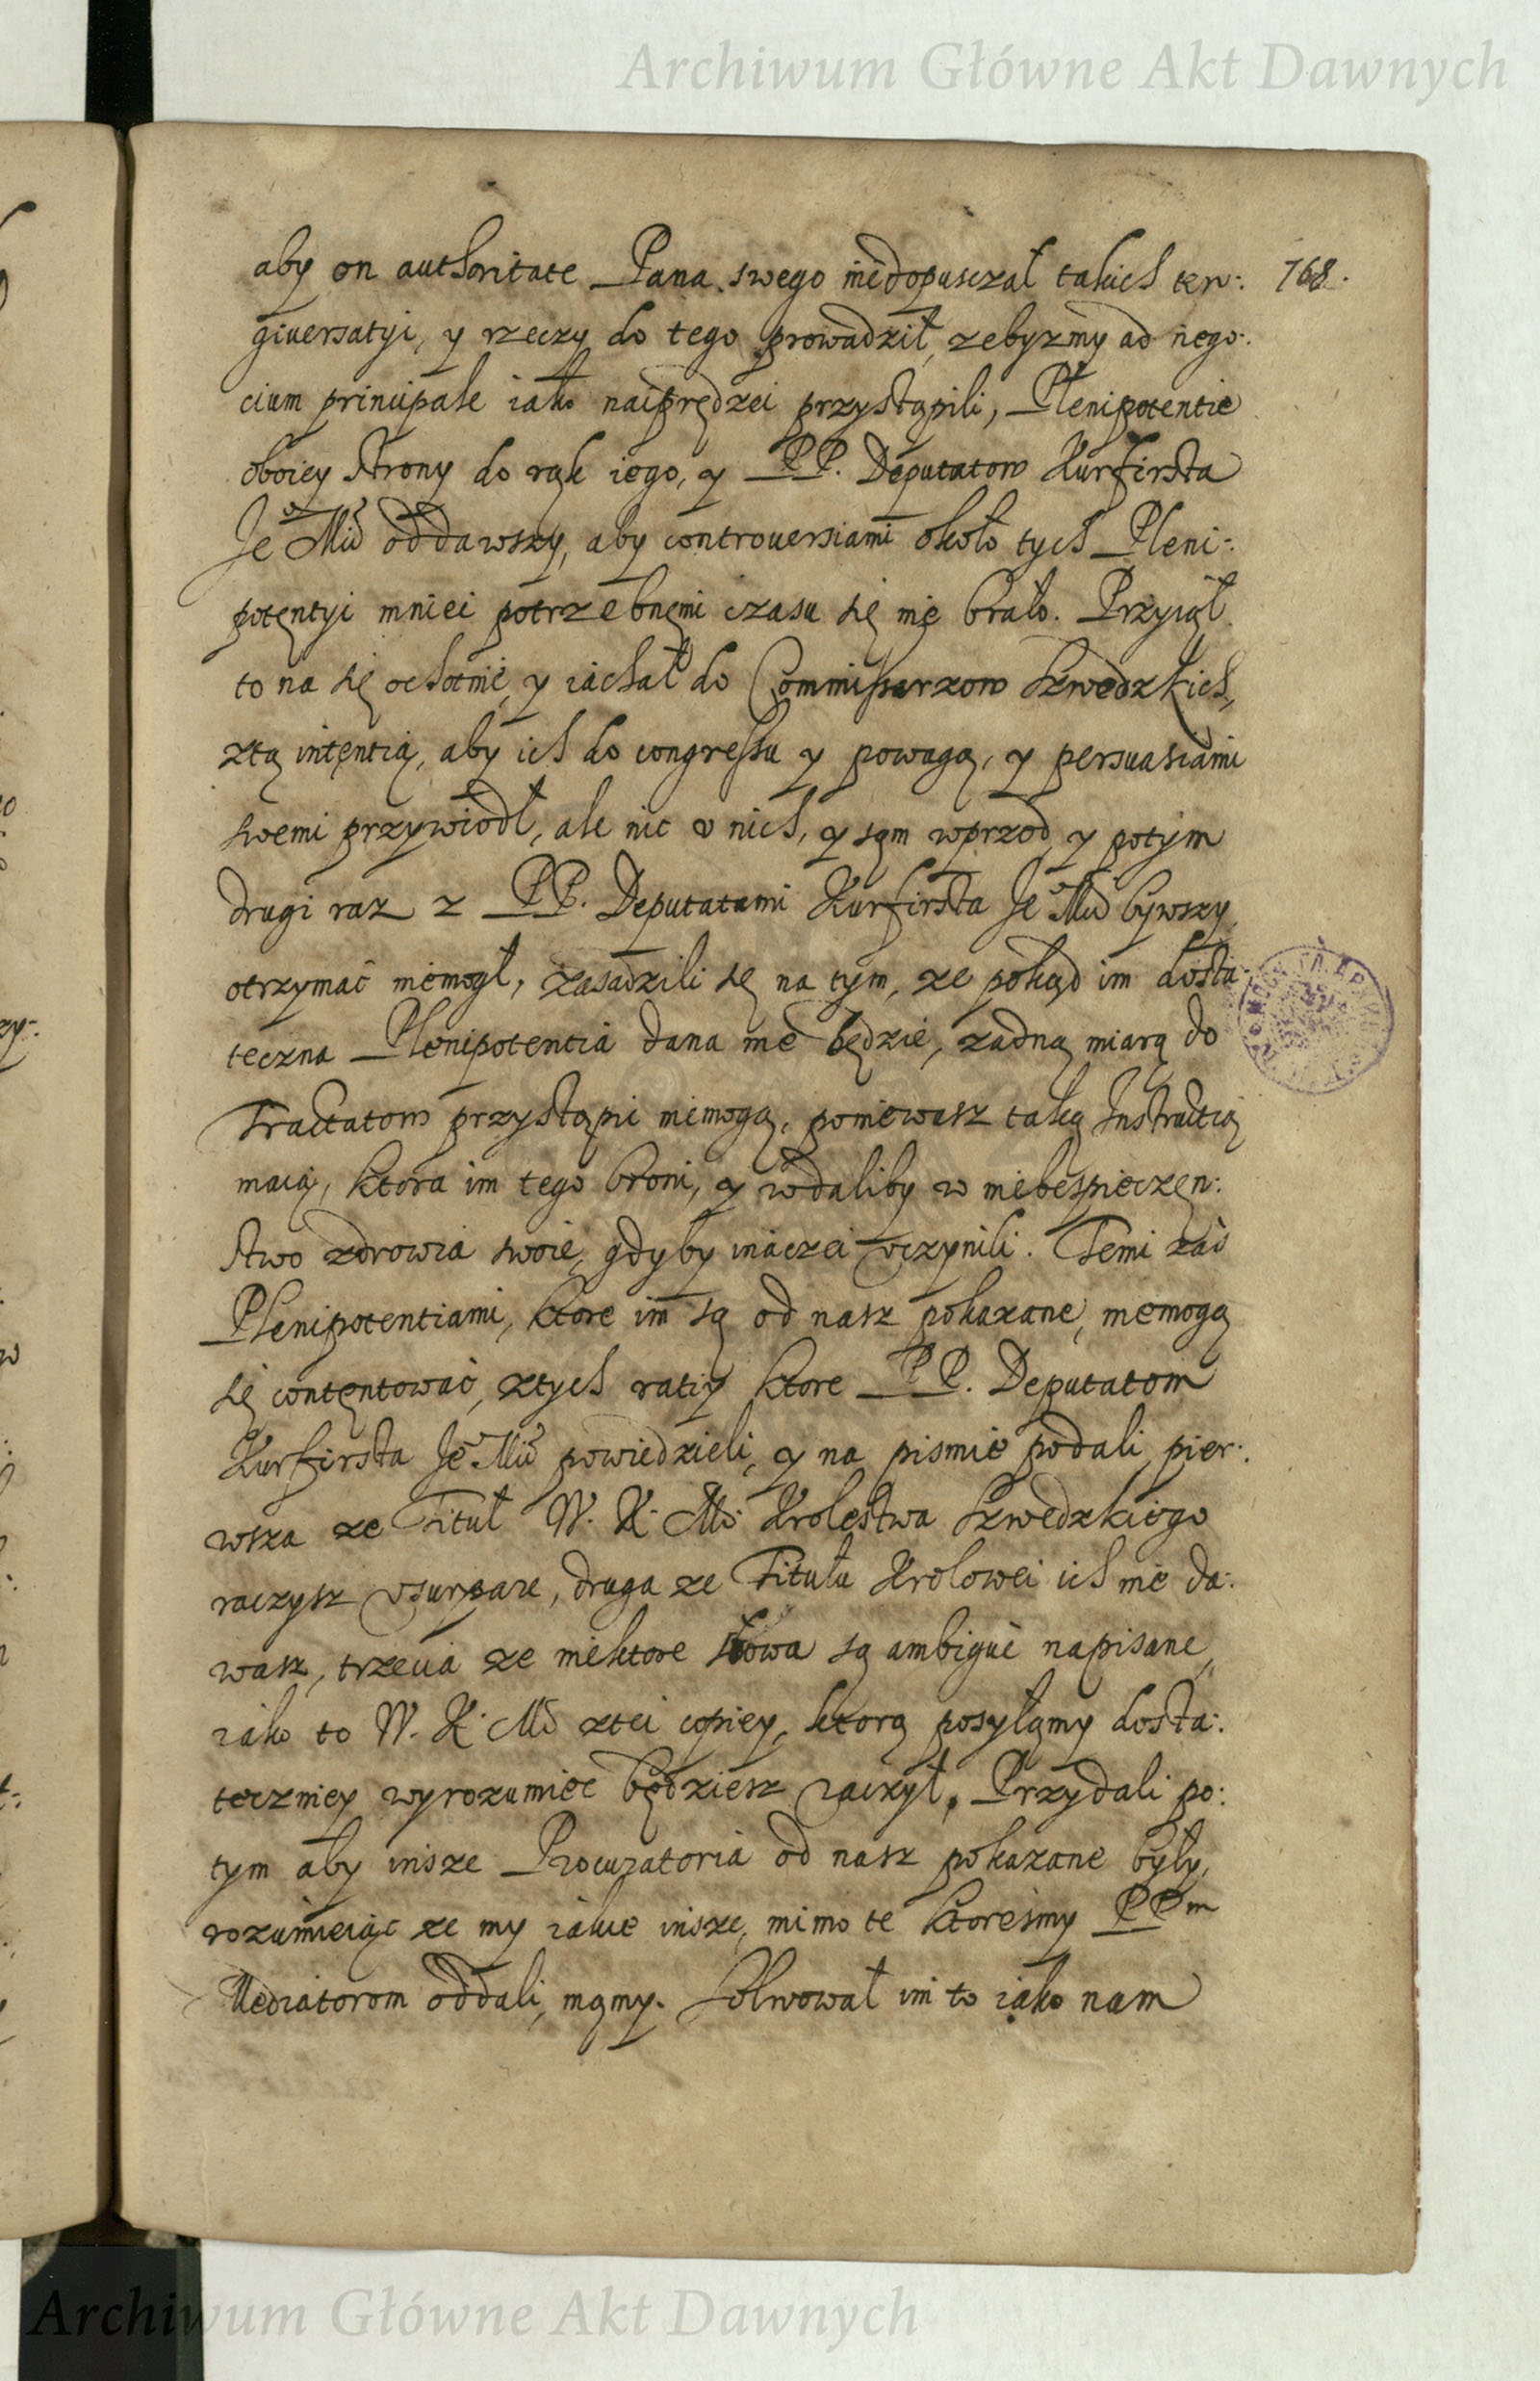 Archiwum Główne Akt Dawnych
aby on authoritate Pana swego niedopusczał takich ter:
768.
giuersatyi, y rzeczy do tego prowadził, zebyzmy ad nego:
cium principale iako naiprędzei przystąpili, Plenipotentie
oboiey strony do rąk iego, y PP. Deputatow Kurfirsta
Je° Mći oddawszy, aby controuersiami około tych Pleni:
potentyi mniei potrzebnemi czasu się nie brało. Przyiął
to na się ochotnie, y iachał do Commissarzow Szwedzkich,
ztą intentią, aby ich do congressu y powagą, y persuasiami
swemi przywiodł, ale nic v nich, y sąm wprzod, y potym
drugi raz z PP. Deputatami Kurfirsta Je° Mći bywszy,
otrzymać niemogł, zasadzili się na tym, ze pokąd im dosta:
teczna Plenipotentia dana nie będzie, zadną miarą do
Tractatow przystąpić niemogą, poniewasz taką Instructią
maią, ktora im tego broni, y wdaliby w niebespieczen:
stwo zdrowia swoie, gdyby inaczei vczynili. Temi zaś
Plenipotentiami, ktore im są od nasz pokazane, niemogą
się contentować, ztych ratiy ktore PP. Deputatom
Kurfirsta Je° Mći powiedzieli, y na pismie podali, pier:
wsza ze Tituł W. K. Mć Krolestwa Szwedzkiego
raczysz vsurpare, druga ze Titułu Krolowei ich nie da:
wasz, trzecia ze niektore słowa są ambiguè napisane,
iako to W. K. Mć ztei copiey, ktorą posyłamy dosta:
teczniey wyrozumieć będziesz raczył. Przydali po:
tym aby insze Procuratoria od nasz pokazane były,
rozumieiąc ze my iakie insze, mimo te ktoreśmy PPm
Mediatorom oddali, mąmy. Solwował im to iako nam
Archiwum Główne Akt Dawnych